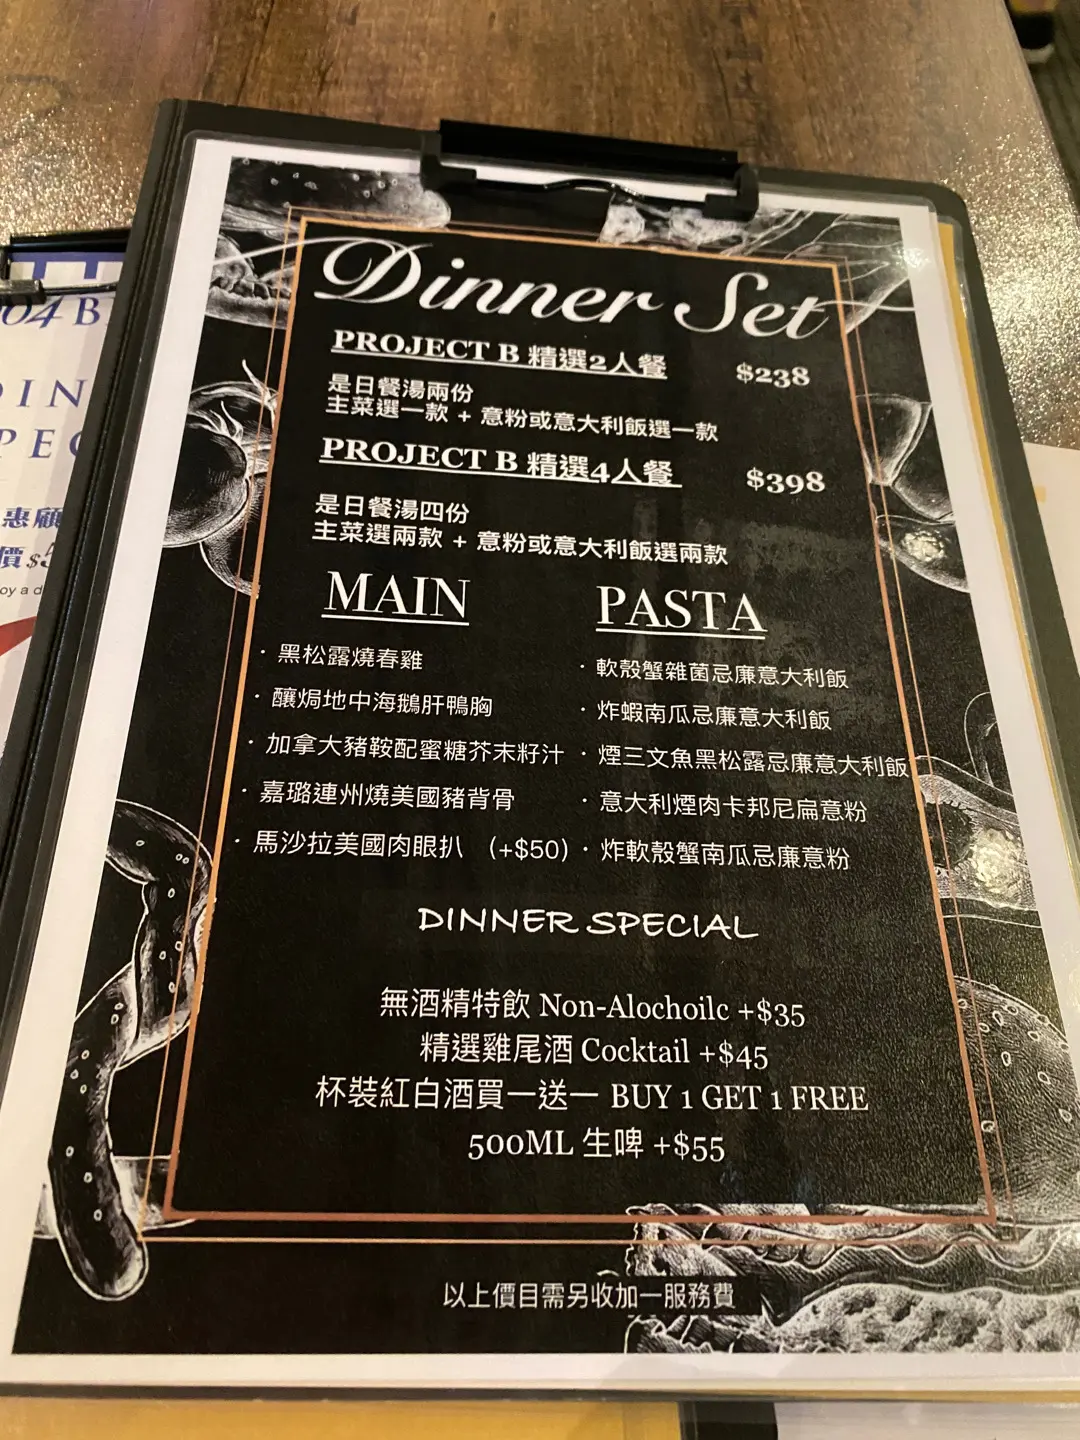 Dinner Set
PROJECT B 精選2人餐 $238
是日餐湯兩份
主菜選一款 + 意粉或意大利飯選一款
PROJECT B 精選4人餐 $398
是日餐湯四份
主菜選兩款 + 意粉或意大利飯選兩款
MAIN
· 黑松露燒春雞
· 釀焗地中海鵝肝鴨胸
· 加拿大豬鞍配蜜糖芥末籽汁
· 嘉璐連州燒美國豬背骨
· 馬沙拉美國肉眼扒 (+$50)
PASTA
· 軟殼蟹雜菌忌廉意大利飯
· 炸蝦南瓜忌廉意大利飯
· 煙三文魚黑松露忌廉意大利飯
· 意大利煙肉卡邦尼扁意粉
· 炸軟殼蟹南瓜忌廉意粉
DINNER SPECIAL
無酒精特飲 Non-Alochoilc +$35
精選雞尾酒 Cocktail +$45
杯裝紅白酒買一送一 BUY 1 GET 1 FREE
500ML 生啤 +$55
以上價目需另收加一服務費
04 B
DIN
PEC
惠顧
價 $5
oy a d